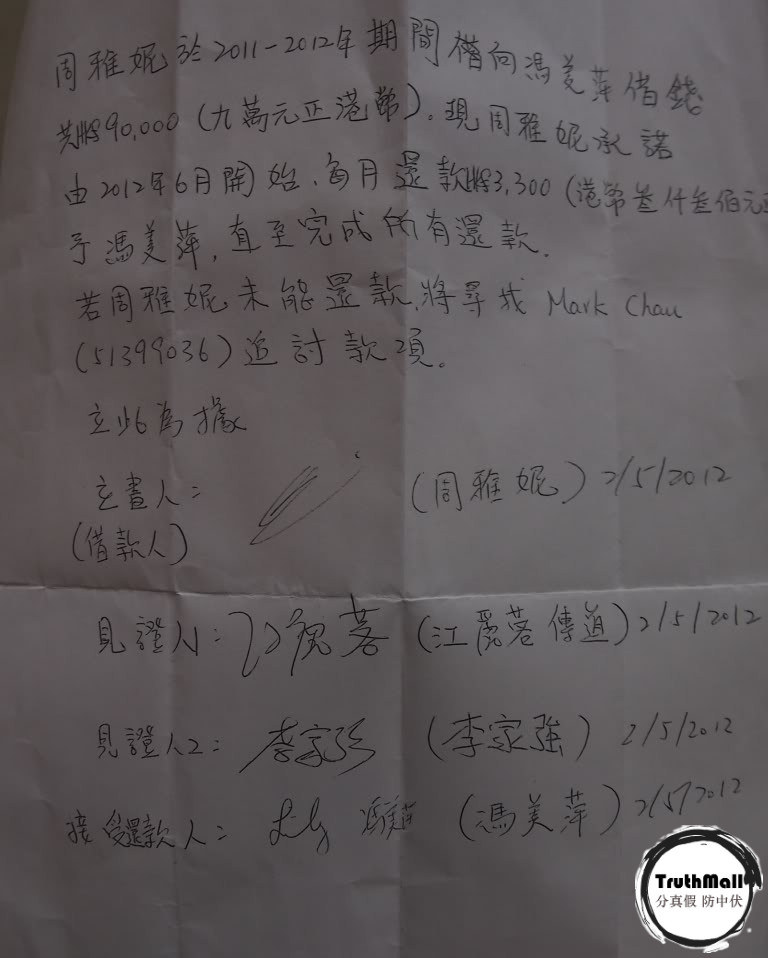 周雅妮於2011-2012年期間曾向馮美萍借錢
共HK$90,000(九萬元正港幣)。現周雅妮承諾
由2012年6月開始、每月還款HK$3,300(港幣叁仟叁佰元正
予馮美萍,直至完成所有還款.
若周雅妮未能還款,將尋找 Mark Chau
(51399036)追討款項。
立此為據
立書人:(周雅妮)2/5/2012
(借款人)
見證人1:(江麗蓉傳道)2/5/2012
見證人2:李家強(李家強)2/5/2012
接受還款人:Lily 馮美萍(馮美萍)2/5/2012
TruthMall
分真假 防中伏